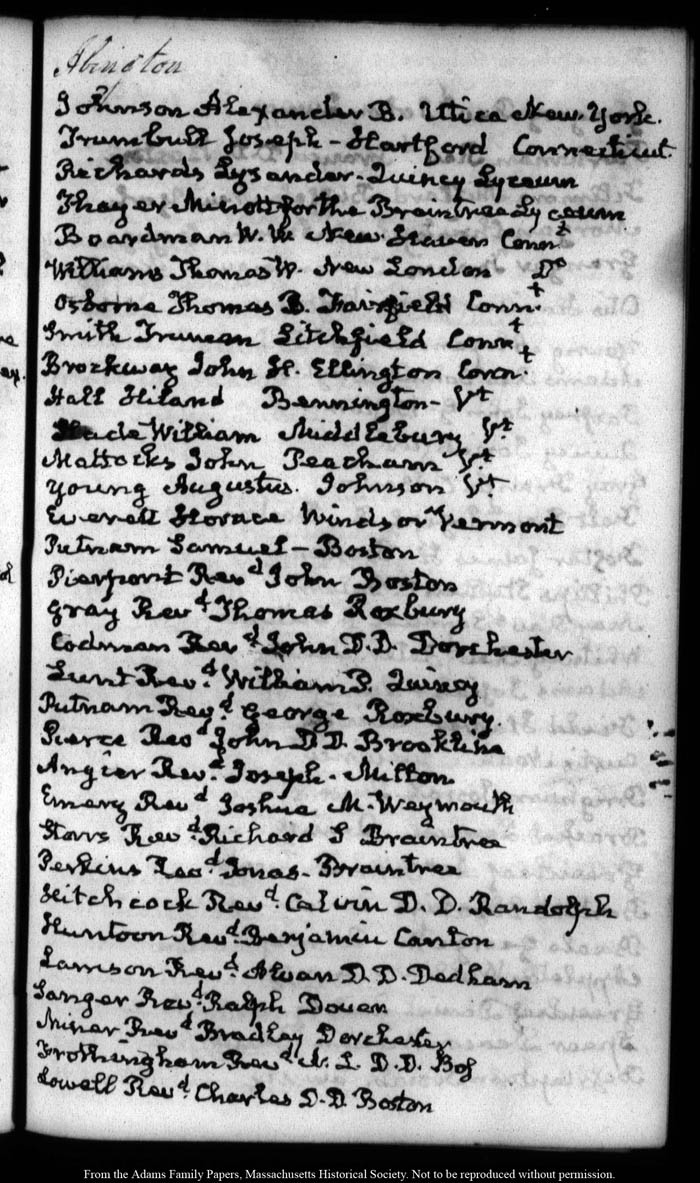 Abington
Johnson Alexander B. Utica New-York.
Trumbull Joseph - Hartford Connecticut.
Richards Lysander - Quincy Lyceum
Thayer Minott for the Braintree Lyceum.
Boardman W. W. New-Haven Connt
Williams Thomas W. New London Do
Osborne Thomas B. Fairfield Connt
Smith Truman Litchfield Connt
Brockway John H. Ellington Connt.
Hall Hiland Bennington - Vt
Slade William Middlebury Vt
Mattocks John Peacham Vt
Young Augustus. Johnson Vt
Everett Horace Windsor Vermont
Putnam Samuel - Boston
Pierpont Revd John Boston
Gray Revd Thomas Roxbury
Codman Revd John D.D. Dorchester
Lunt Revd. William P. Quincy
Putnam Revd. George Roxbury.
Pierce Revd John D D. Brookline
Angier Revd. Joseph - Milton
Emery Revd Joshua M - Weymouth
Storrs Revd. Richard S Braintree
Perkins Revd. Jonas - Braintree
Hitchcock Revd. Calvin D. D. Randolph
Huntoon Revd. Benjamin Canton
Lamson Revd. Alvan D D. Dedham
Sanger Revd. Ralph Dover
Miner Revd Bradley Dorchester
Frothingham Revd N. L. D. D. Bos
Lowell Revd. Charles D. D. Boston
From the Adams Family Papers, Massachusetts Historical Society. Not to be reproduced without permission.